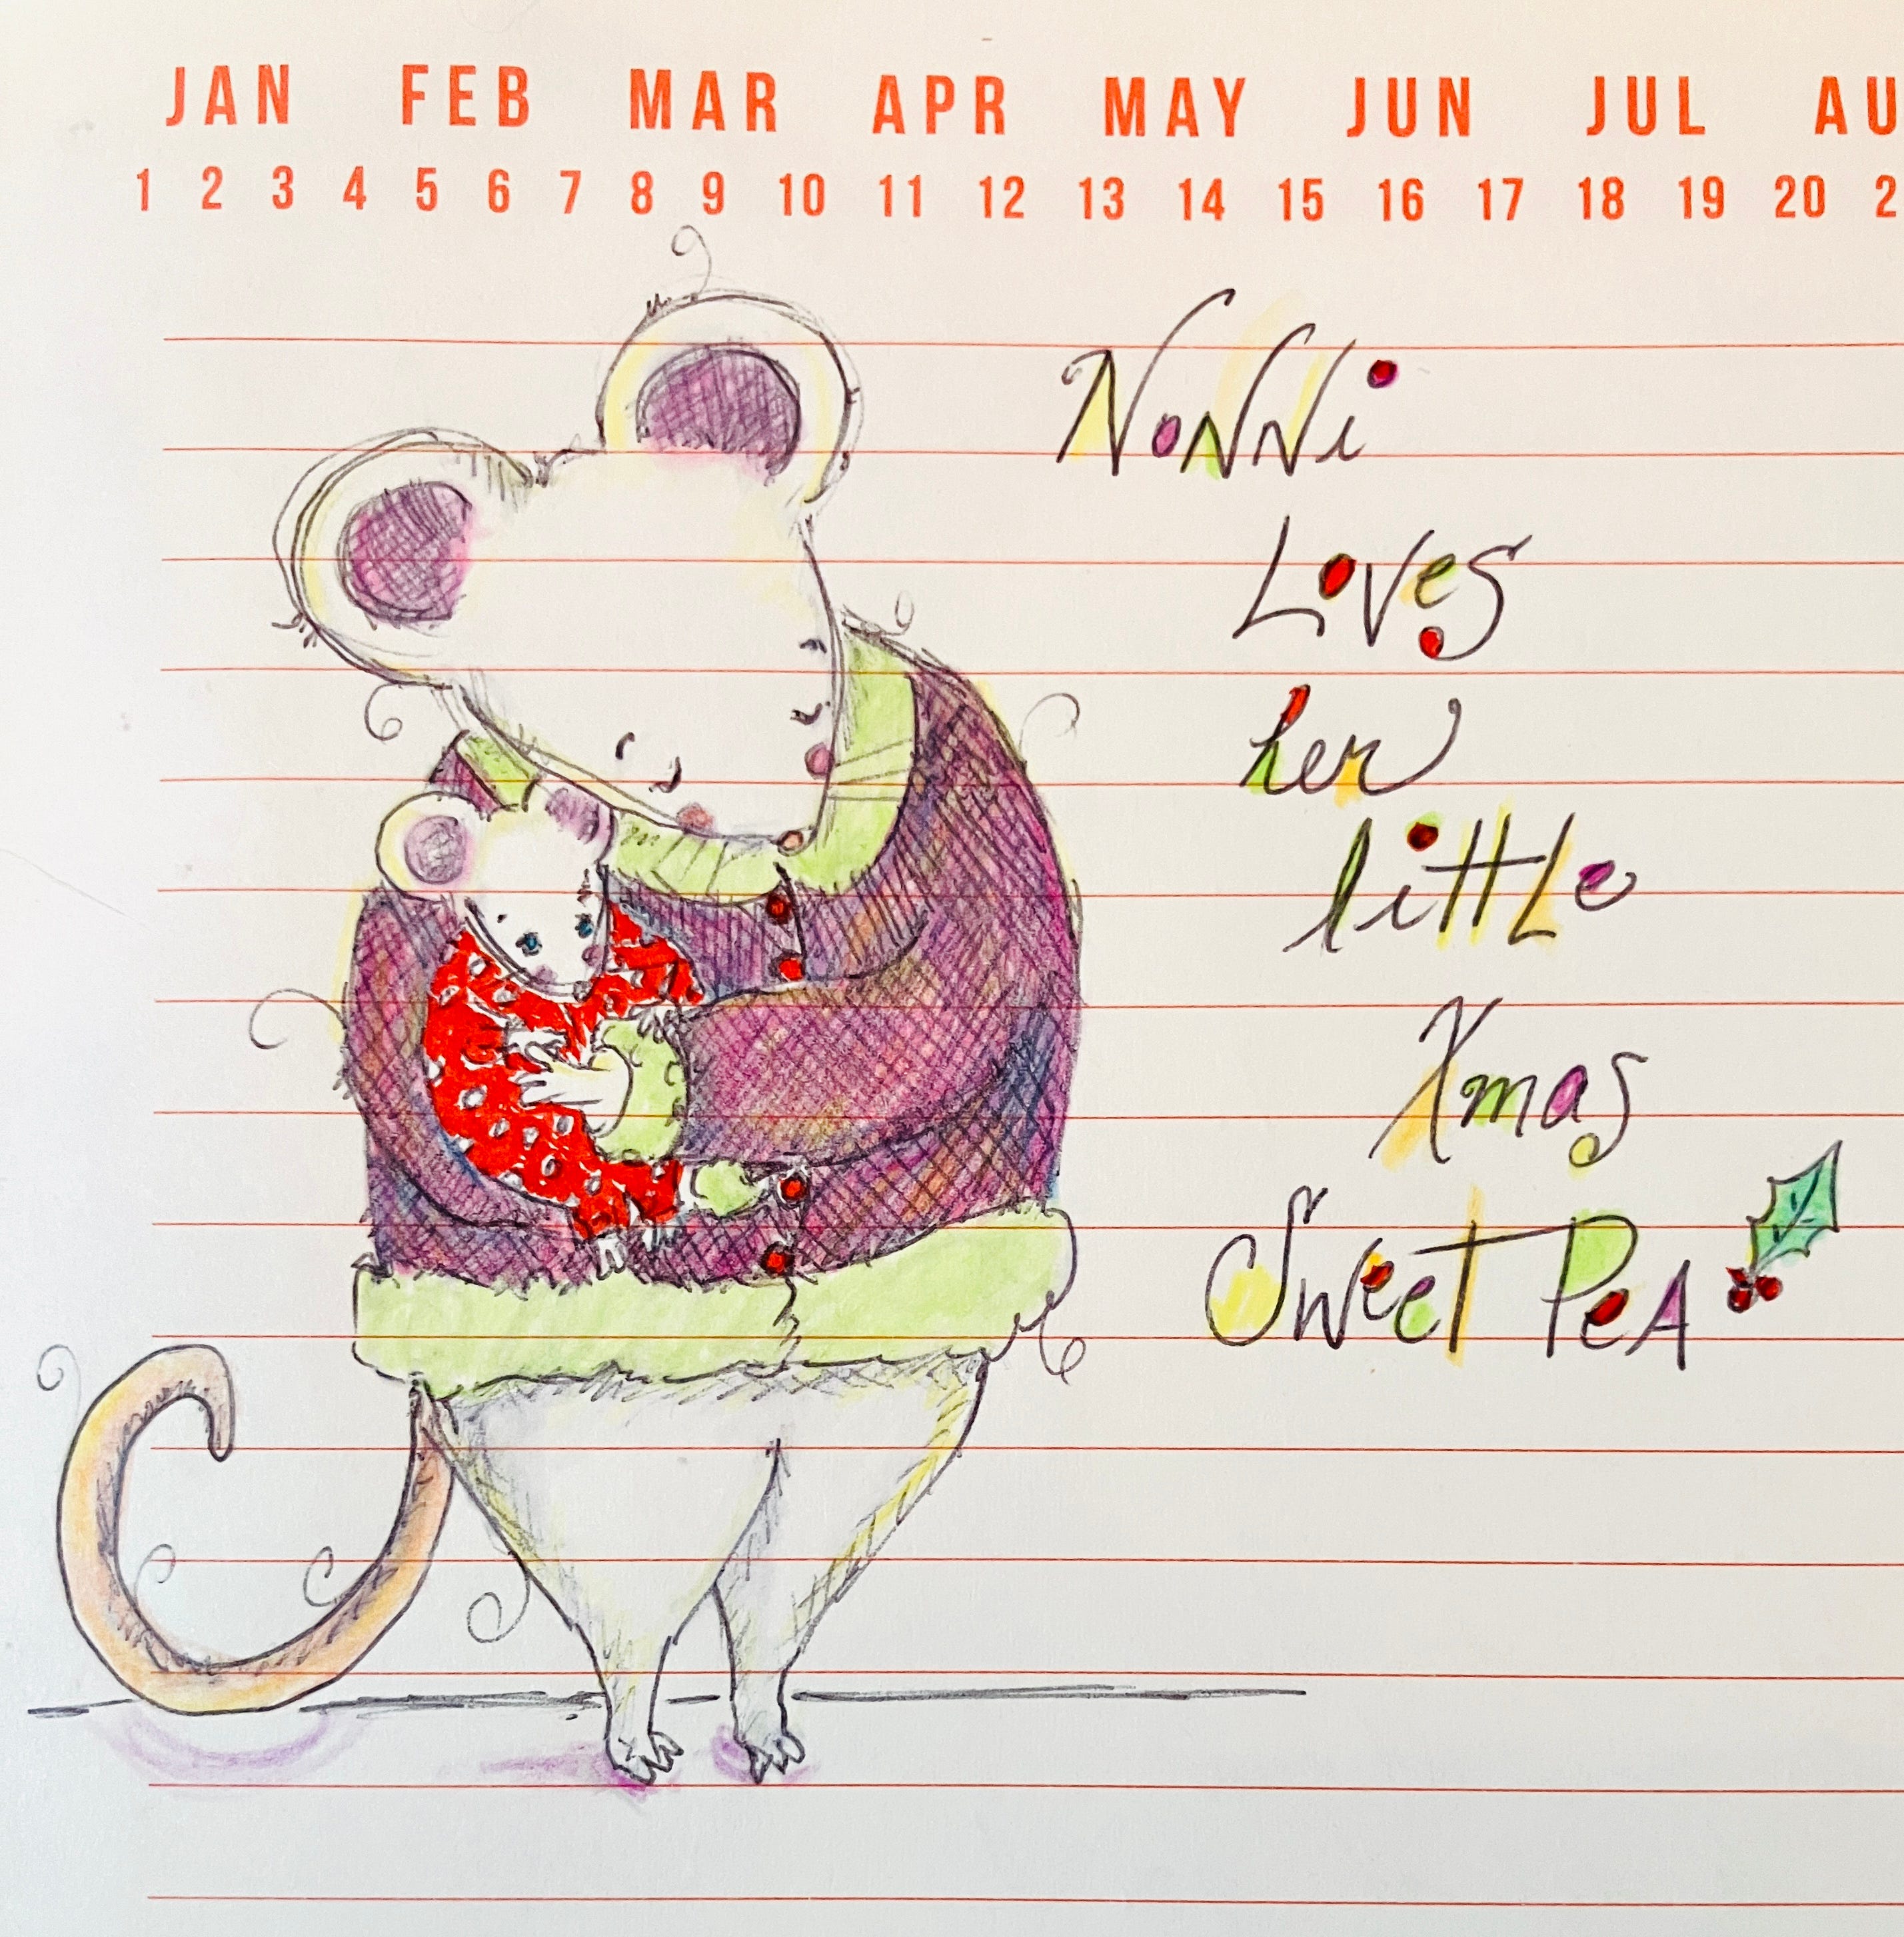 JAN FEB MAR APR MAY JUN JUL AU
1 2 3 4 5 6 7 8 9 10 11 12 13 14 15 16 17 18 19 20 2
NoNNi
Loves
her
little
Xmas
Sweet PeA